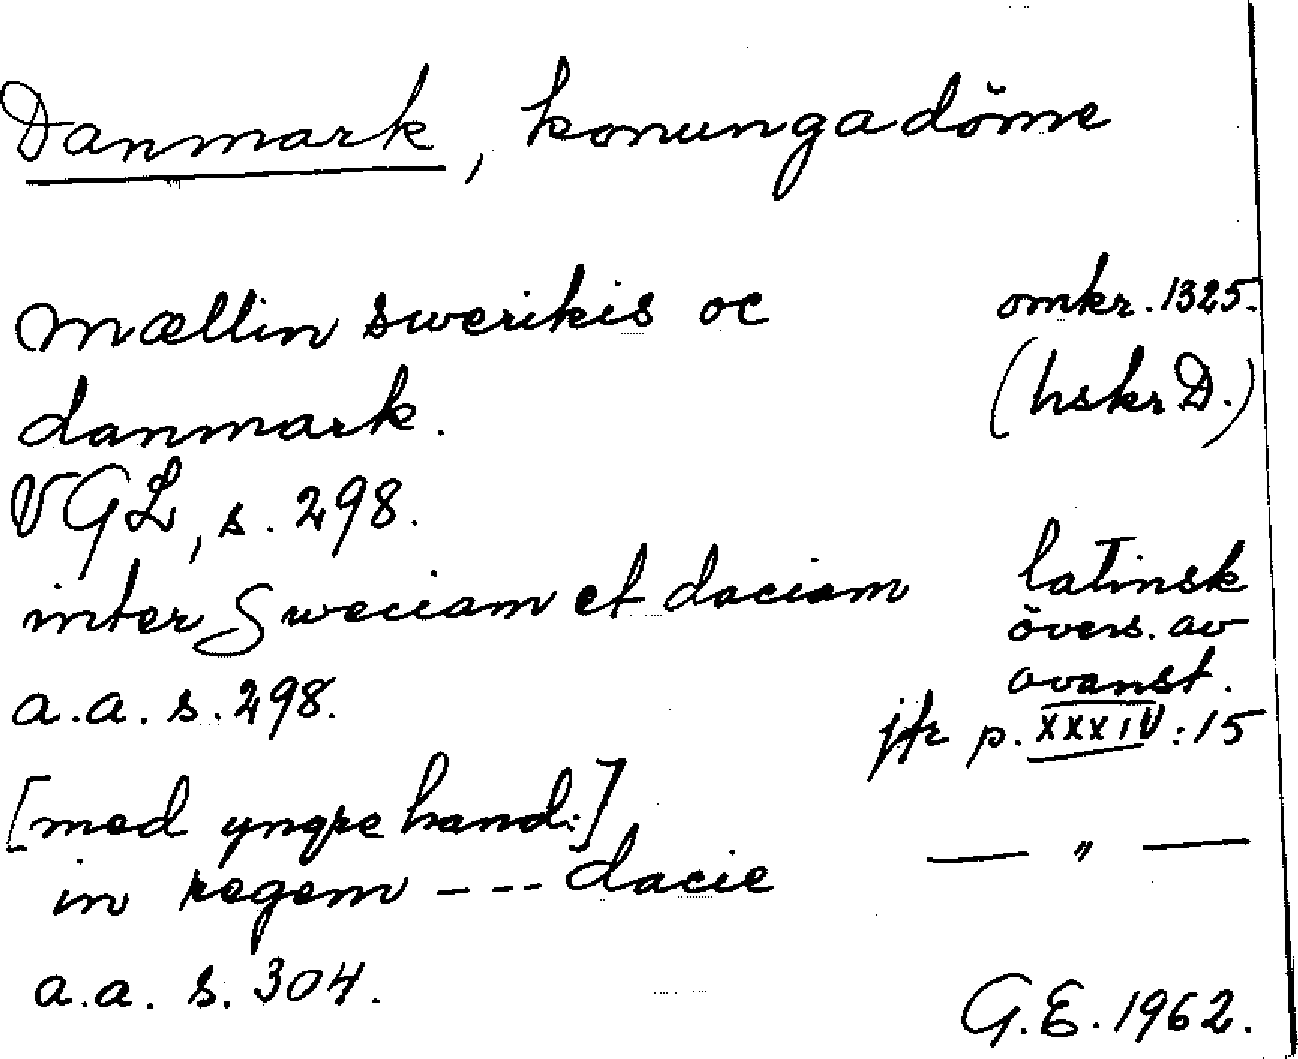 Danmark, konungadöme
mællin swerikis oc omkr. 1325.
danmark. (hskr D.)
VGL, s. 298.
inter Sweciam et daciam latinsk
övers. av
ovanst.
a.a. s. 298. jfr p. XXXIV:15
[med yngre hand:]
in regem --- dacie — " —
a.a. s. 304.
G.E. 1962.